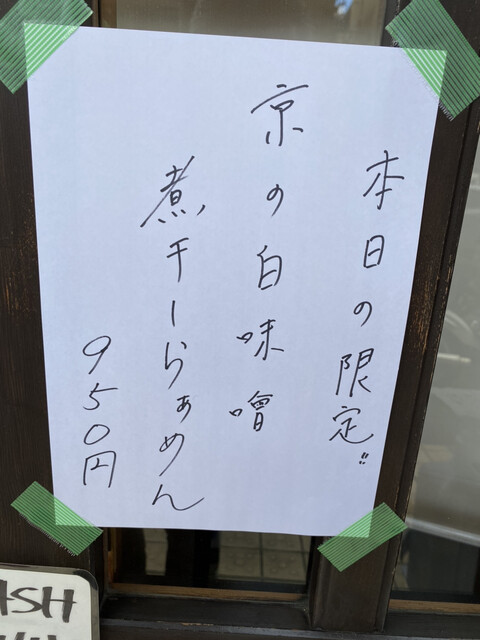 本日の限定〃
京の白味噌
煮干しらぁめん
950円
ASH